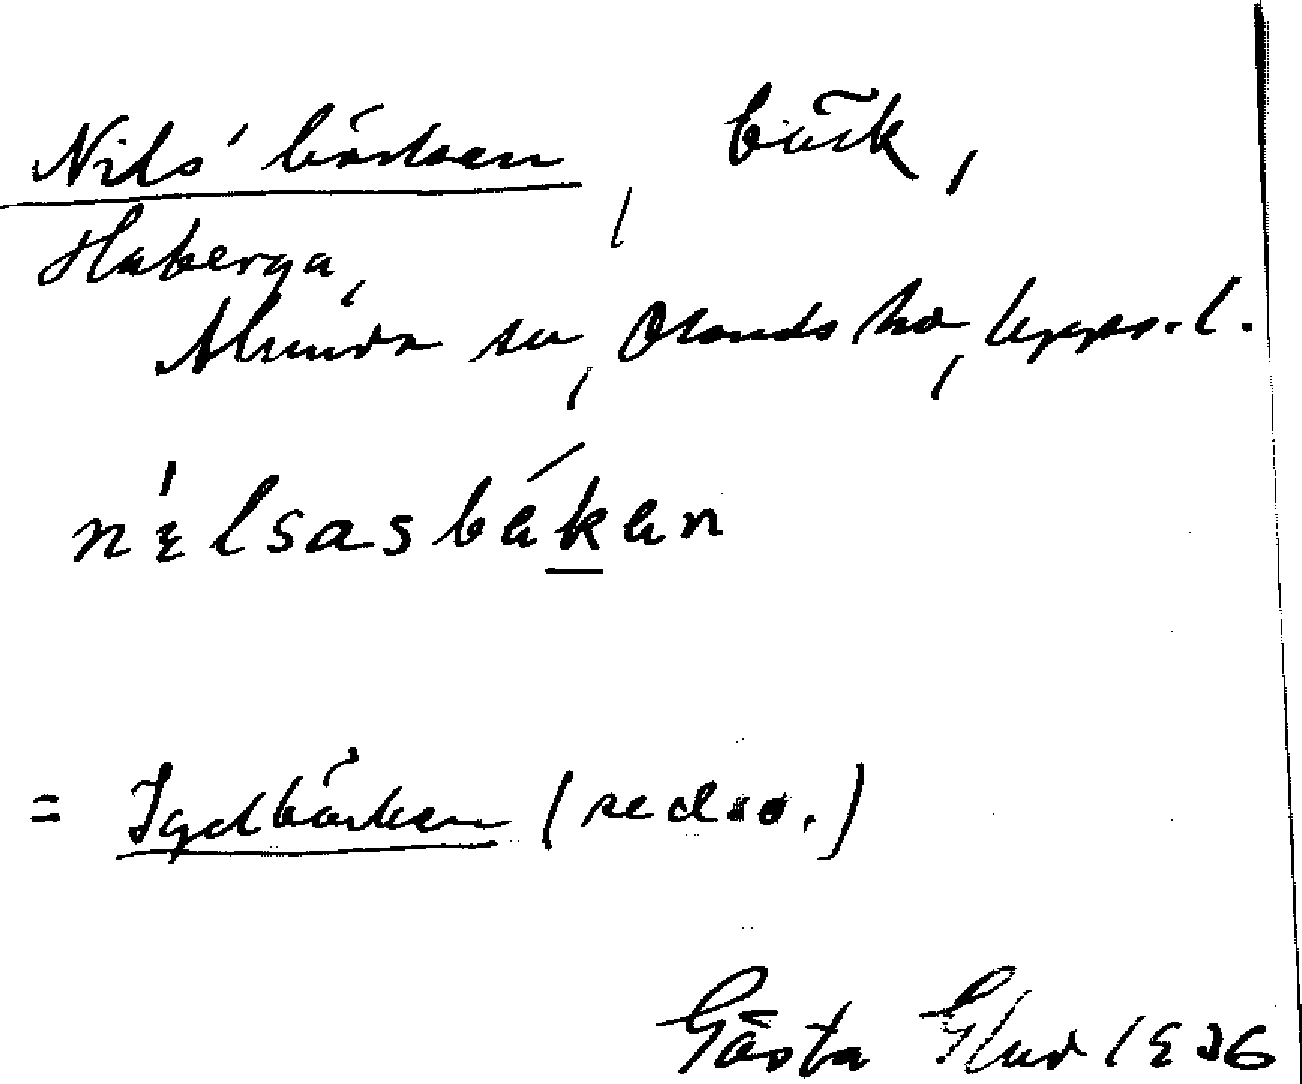 Nils' bäcken, bäck,
Haberga,
Alunda sn, Olands hd, Upps. l.
nɩlsasbäkan
= Igelbäcken (se d:o.)
Gösta